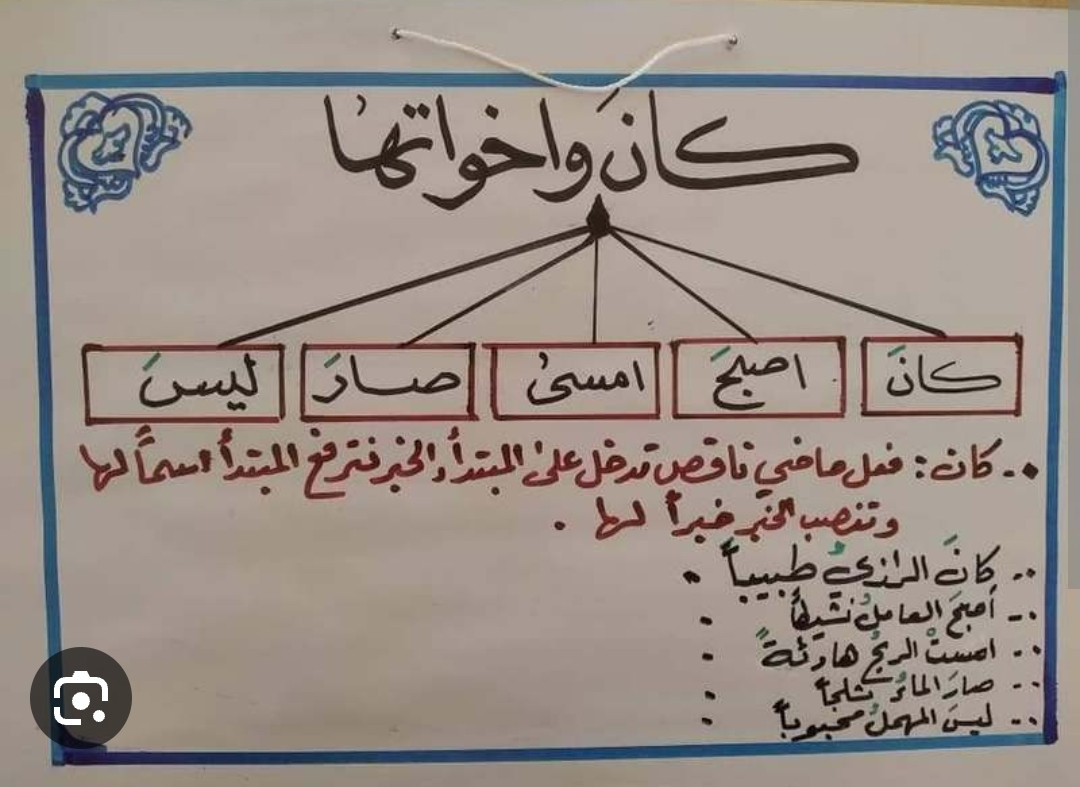 كانَ واخواتها
كانَ اصبحَ امسىٰ صارَ ليسَ
كان : فعل ماضي ناقص تدخل على المبتدأ والخبر فترفع المبتدأ اسماً لها
وتنصب الخبر خبراً لها .
كانَ الرازيُ طبيباً .
أصبحَ العاملُ نشيطاً .
امستْ الريحُ هادئةً .
صارَ الماءُ ثلجاً .
ليسَ المهملُ محبوباً .